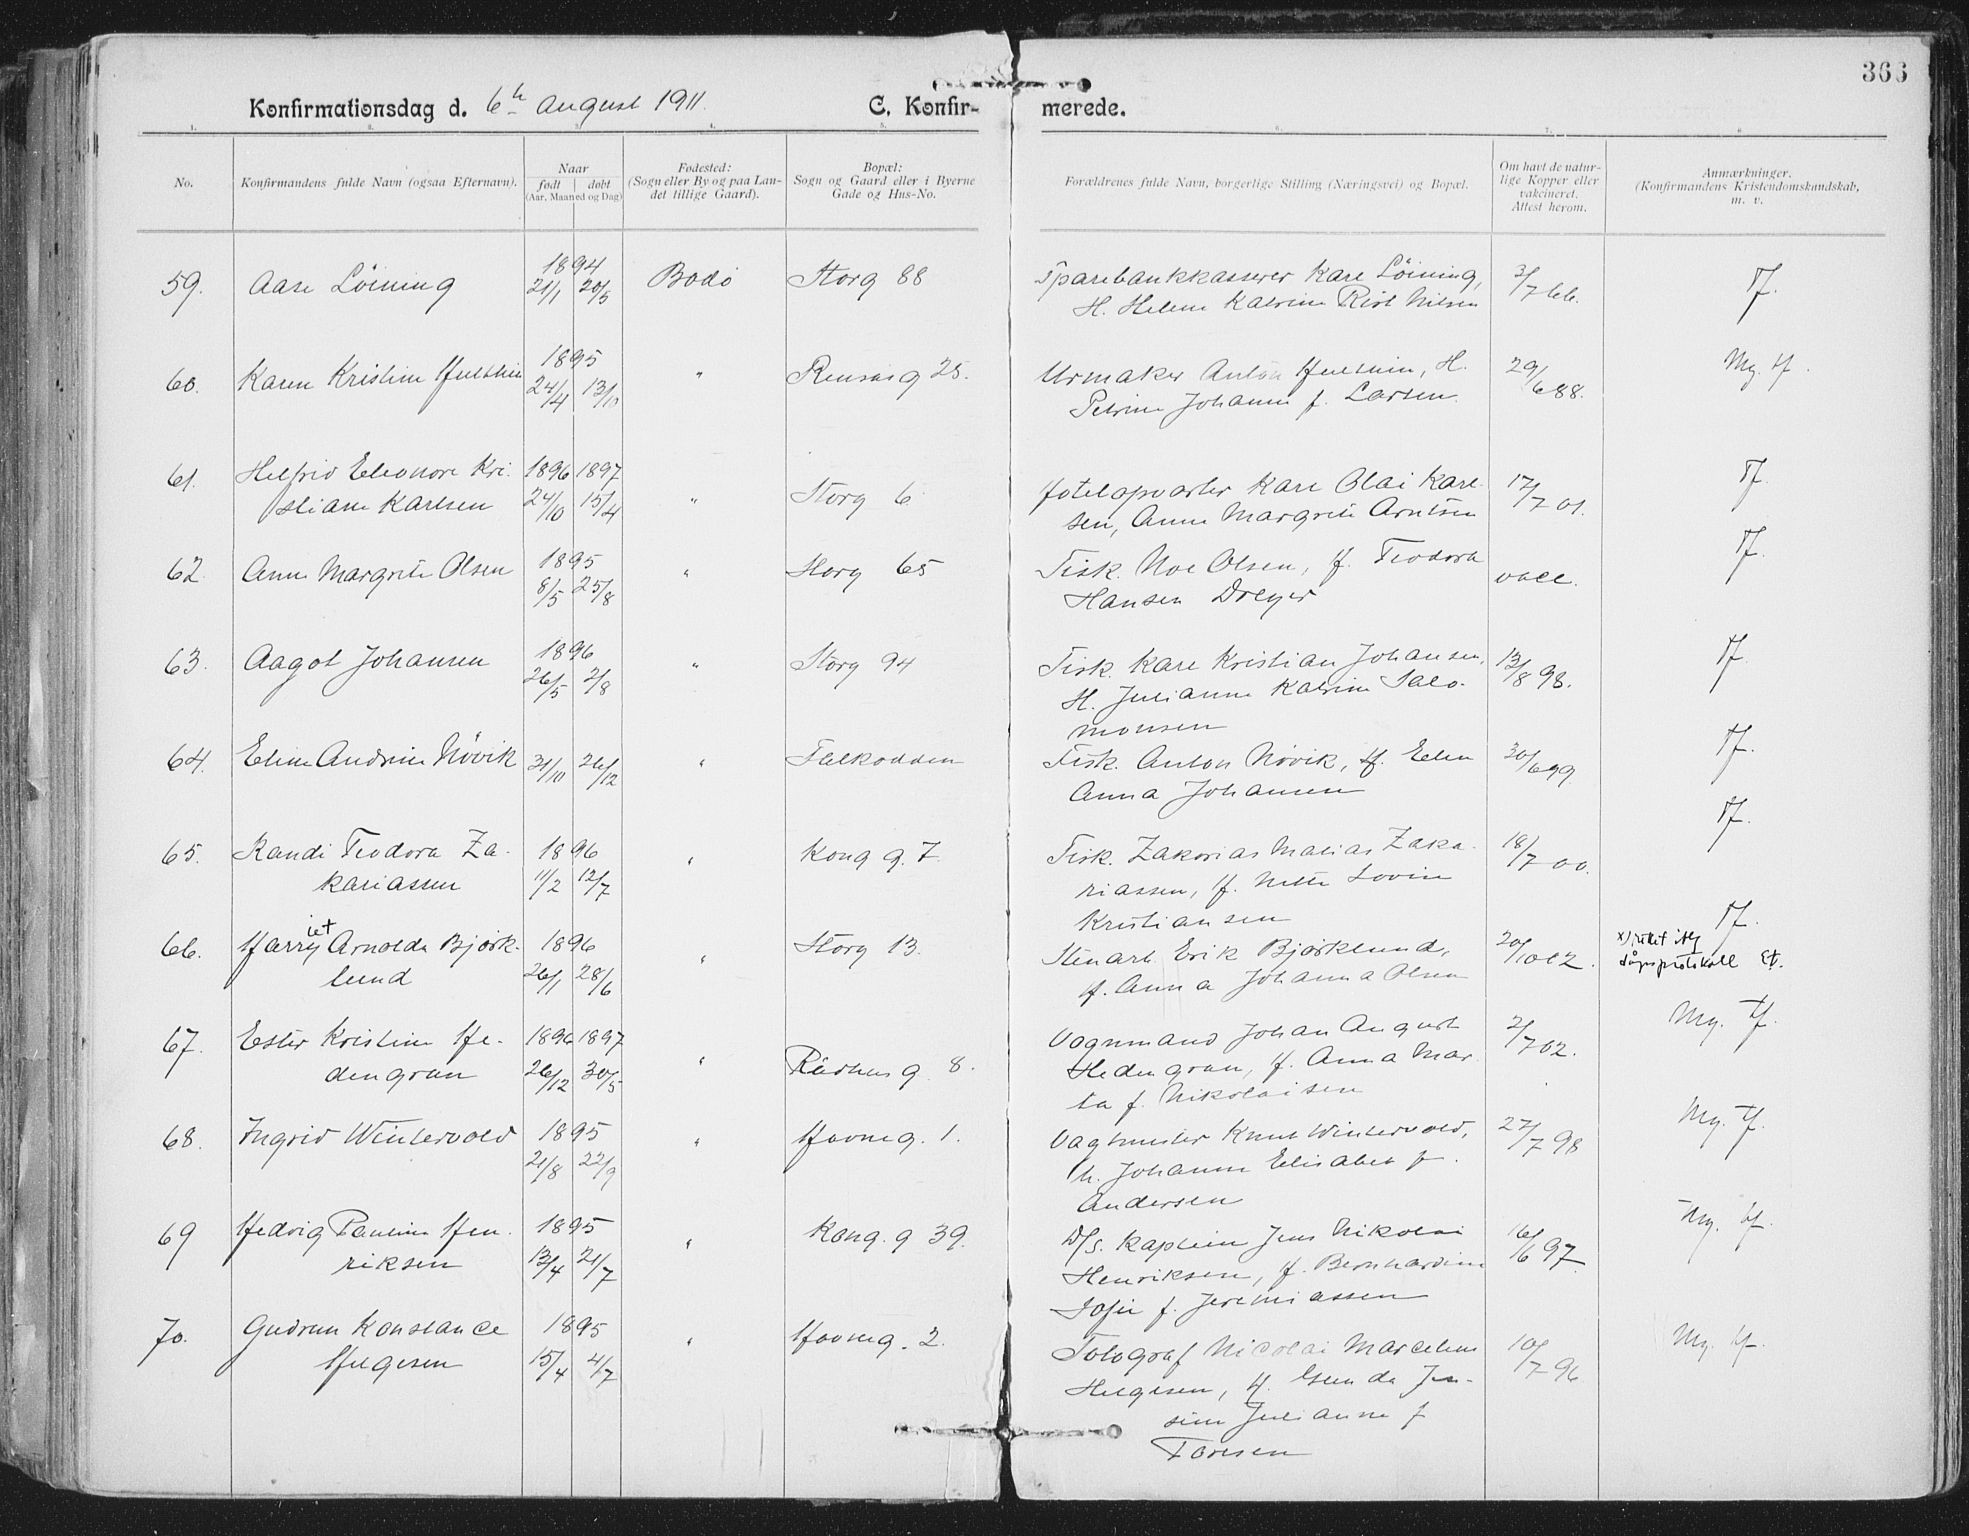 366
Konfirmationsdag d. 6te august 1911. C. Konfir- merede.
1. 2. 3. 4. 5. 6. 7. 8.
No. Konfirmandens fulde Navn (ogsaa Efternavn). Naar født døbt (Aar, Maaned og Dag) Fødested: (Sogn eller By og paa Lan- det tillige Gaard). Bopæl: Sogn og Gaard eller i Byerne Gade og Hus-No. Forældrenes fulde Navn, borgerlige Stilling (Næringsvei) og Bopæl. Om havt de natur- lige Kopper eller vakcineret. Attest herom. Anmærkninger. (Konfirmandens Kristendomskundskab, m. v.
1894
59. Aase Löining 21/1 20/5 Bodö Storg 88 Sparebankkasserer Karl Löining, 3/7 66. Tf.
H. Helene Katrine Rist Nilsen
1895
60. Karen Kristine Hulthin 24/4 13/10 " Rensåsg 25. Urmaker Anton Hulthin, H. 29/6 88. Mg. tf.
Petrine Johanne f. Larsen.
61. Helfrid Eleonore Kri- 1896 1897 Tf.
stiane Karlsen 24/10 15/4 " Storg 6 Hotelopvarter Karl Olai Karl- 17/7 01.
sen, Anne Margrete Arntsen
62. Anne Margrete Olsen 1895 " Storg 65 Fisk. Noe Olsen, H. Teodora vacc. Tf.
8/5 25/8 Hansen Dreyer
63. Aagot Johansen 1896 " Storg 94 Fisk. Karl Kristian Johansen, 13/8 98. Tf.
26/5 2/8 H. Julianne Katrine Salo-
monsen
64. Eline Andrine Növik 31/10 26/12 " Falkodden Fisk. Anton Növik, H. Elen 30/6 99 Tf.
Anna Johansen
65. Randi Teodora Za- 1896 " Kong g. 7. Fisk. Zakarias Matias Zaka- 18/7 00. Tf.
kariassen 11/2 12/7 riassen, H. Nette Lovise
Kristiansen
iet
66. Harry Arnolda Björk- 1896 " Storg 13. Stenarb. Erik Björklund, 20/10 02. Tf.
lund 26/1 28/6 H. Anna Johanna Olsen
67. Ester Kristine He- 1896 1897 " Rådhusg. 8. Vognmand Johan August 2/7 02. Mg. tf.
dengran 26/12 30/5 Hedengran, H. Anna Mar-
ta f. Nikolaisen
68. Ingrid Wintervold 1895 " Havneg. 1. Vagtmester Knut Wintervold, 27/7 98 Mg. tf.
21/8 22/9 h. Johanne Elisabet f.
Andersen
69 Hedvig Pauline Hen- 1895 " Kong. g 39. D/s. kaptein Jens Nikolai 16/6 97 Mg. tf.
riksen 13/4 21/7 Henriksen, H. Bernhardine
Sofie f. Jeremiassen
70. Gudrun Konstance 1895 " Havneg. 2. Fotograf Nicolai Marcelius 10/7 96 Mg. tf.
Helgesen 15/4 4/7 Helgesen, H. Gunda Jen-
sine Julianne f
Toresen